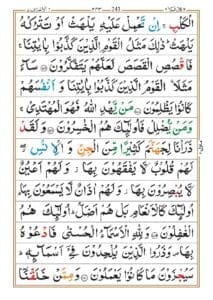 قال الملا ٩
٢٤٣
الْكَلْبِ ۚ اِنْ تَحْمِلْ عَلَيْهِ يَلْهَثْ اَوْ تَتْرُكْهُ
يَلْهَثْ ؕ ذٰلِكَ مَثَلُ الْقَوْمِ الَّذِيْنَ كَذَّبُوْا بِاٰيٰتِنَا ۚ
فَاقْصُصِ الْقَصَصَ لَعَلَّهُمْ يَتَفَكَّرُوْنَ ۝
سَآءَ مَثَلَاۨ الْقَوْمُ الَّذِيْنَ كَذَّبُوْا بِاٰيٰتِنَا وَ اَنْفُسَهُمْ
كَانُوْا يَظْلِمُوْنَ ۝ مَنْ يَّهْدِ اللّٰهُ فَهُوَ الْمُهْتَدِيْ ۚ
وَمَنْ يُّضْلِلْ فَاُولٰٓئِكَ هُمُ الْخٰسِرُوْنَ ۝ وَلَقَدْ
ذَرَاْنَا لِجَهَنَّمَ كَثِيْرًا مِّنَ الْجِنِّ وَ الْاِنْسِ ۖ
لَهُمْ قُلُوْبٌ لَّا يَفْقَهُوْنَ بِهَا ۫ وَ لَهُمْ اَعْيُنٌ
لَّا يُبْصِرُوْنَ بِهَا ۫ وَ لَهُمْ اٰذَانٌ لَّا يَسْمَعُوْنَ بِهَا ؕ
اُولٰٓئِكَ كَالْاَنْعَامِ بَلْ هُمْ اَضَلُّ ؕ اُولٰٓئِكَ هُمُ
الْغٰفِلُوْنَ ۝ وَ لِلّٰهِ الْاَسْمَآءُ الْحُسْنٰى فَادْعُوْهُ
بِهَا ۪ وَذَرُوا الَّذِيْنَ يُلْحِدُوْنَ فِيْٓ اَسْمَآئِهٖ ؕ
سَيُجْزَوْنَ مَا كَانُوْا يَعْمَلُوْنَ ۝ وَ مِمَّنْ خَلَقْنَآ